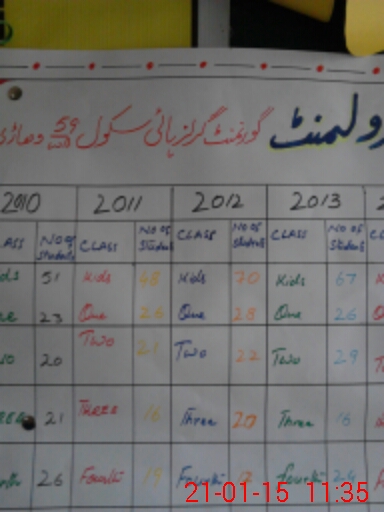 رولمنٹ گورنمنٹ گرلز ہائی سکول 59 وہاڑی
2010 2011 2012 2013
ASS No of Students CLASS No of Students CLASS No of Students CLASS No of Students
ds 51 Kids 48 Kids 70 Kids 67
ne 23 One 26 One 28 One 26
wo 20 Two 21 Two 22 Two 29
ree 21 Three 16 Three 20 Three 16
rth 26 Fourth 19 Fourth Fourth
21-01-15 11:35